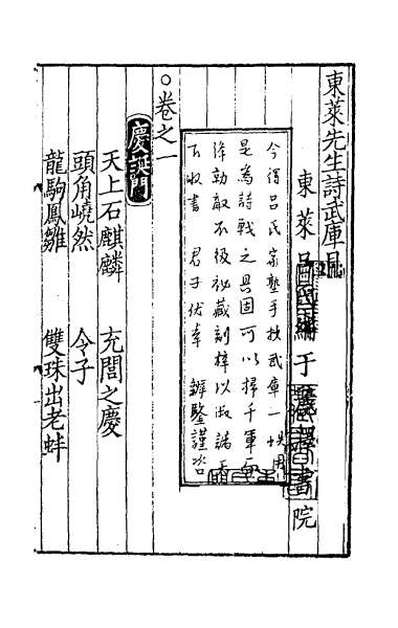 東萊先生詩武庫目
東萊呂氏編于麗澤書院
今得呂氏家塾手抄武庫一帙用
是為詩戰之具固可以掃千軍而
降勍敵不欲秘藏刻梓以淑諸天
下收書君子伏幸詳鑒謹咨
○卷之一
慶誕門
天上石麒麟　充閭之慶
頭角嶢然　令子
龍駒鳳雛　雙珠出老蚌